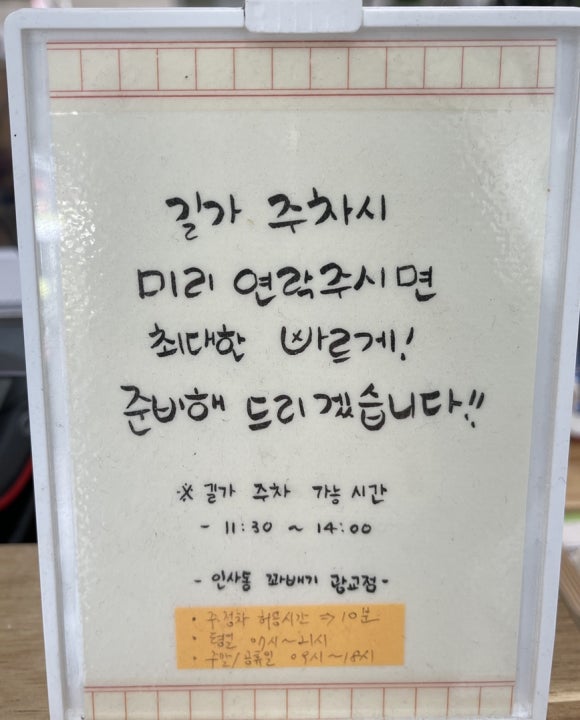 길가 주차시
미리 연락주시면
최대한 빠르게!
준비해 드리겠습니다!!
※ 길가 주차 가능 시간
- 11:30 ~ 14:00
- 인사동 꽈배기 광교점 -
• 주정차 허용시간 ⇒ 10분
• 평일 07시~21시
• 주말/공휴일 09시~18시